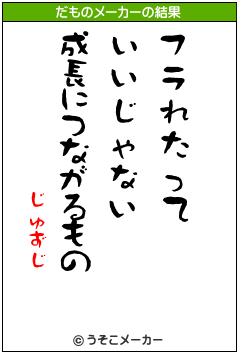 だものメーカーの結果
フラれたって
いいじゃない
成長につながるもの
じゅおじ
©うそこメーカー